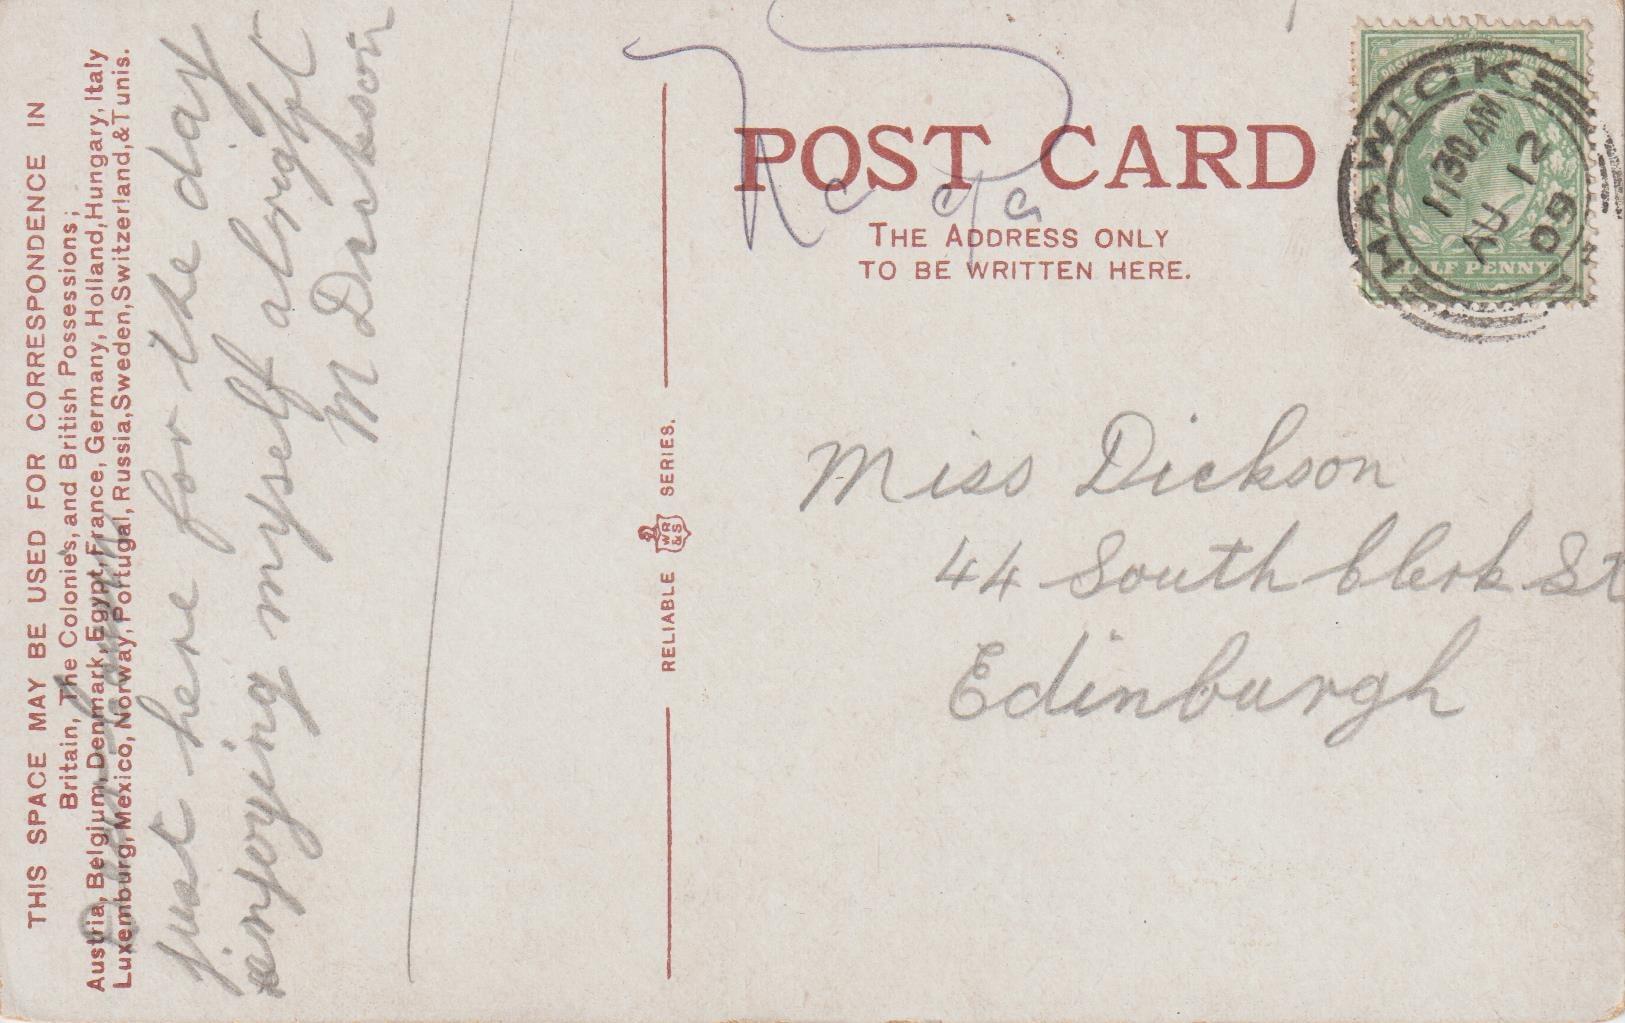 THIS SPACE MAY BE USED FOR CORRESPONDENCE IN
Britain, The Colonies, and British Possessions;
Austria, Belgium, Denmark, Egypt, France, Germany, Holland, Hungary, Italy
Luxemburg, Mexico, Norway, Portugal, Russia, Sweden, Switzerland, & Tunis.
just here for the day
injoying myself alright
M Dickson
RELIABLE WR&S SERIES.
POST CARD
THE ADDRESS ONLY
TO BE WRITTEN HERE.
HAWICK
11 30 AM
AU 12
09
HALF PENNY
Miss Dickson
44 South Clerk St
Edinburgh